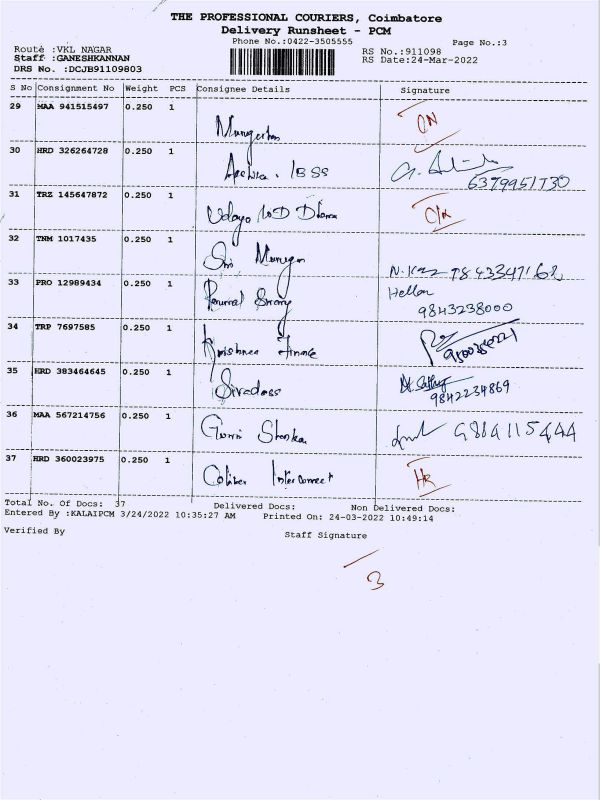 THE PROFESSIONAL COURIERS, Coimbatore
Delivery Runsheet - PCM
Phone No.:0422-3505555 Page No.:3
Route :VKL NAGAR RS No.:911098
Staff :GANESHKANNAN RS Date:24-Mar-2022
DRS No. :DCJB91109803
S No Consignment No Weight PCS Consignee Details Signature
29 MAA 941515497 0.250 1
30 HRD 326264728 0.250 1 IBSS
6379951730
31 TRZ 145647872 0.250 1
32 TNM 1017435 0.250 1 Sri Murugan
33 PRO 12989434 0.250 1 Hellan
9843238000
34 TRP 7697585 0.250 1 Krishna Finance
35 HRD 383464645 0.250 1 Sivadass
9842234869
36 MAA 567214756 0.250 1 Gowri Shankar
37 HRD 360023975 0.250 1 Interconnect HR
Total No. Of Docs: 37 Delivered Docs: Non Delivered Docs:
Entered By :KALAIPCM 3/24/2022 10:35:27 AM Printed On: 24-03-2022 10:49:14
Verified By Staff Signature
3